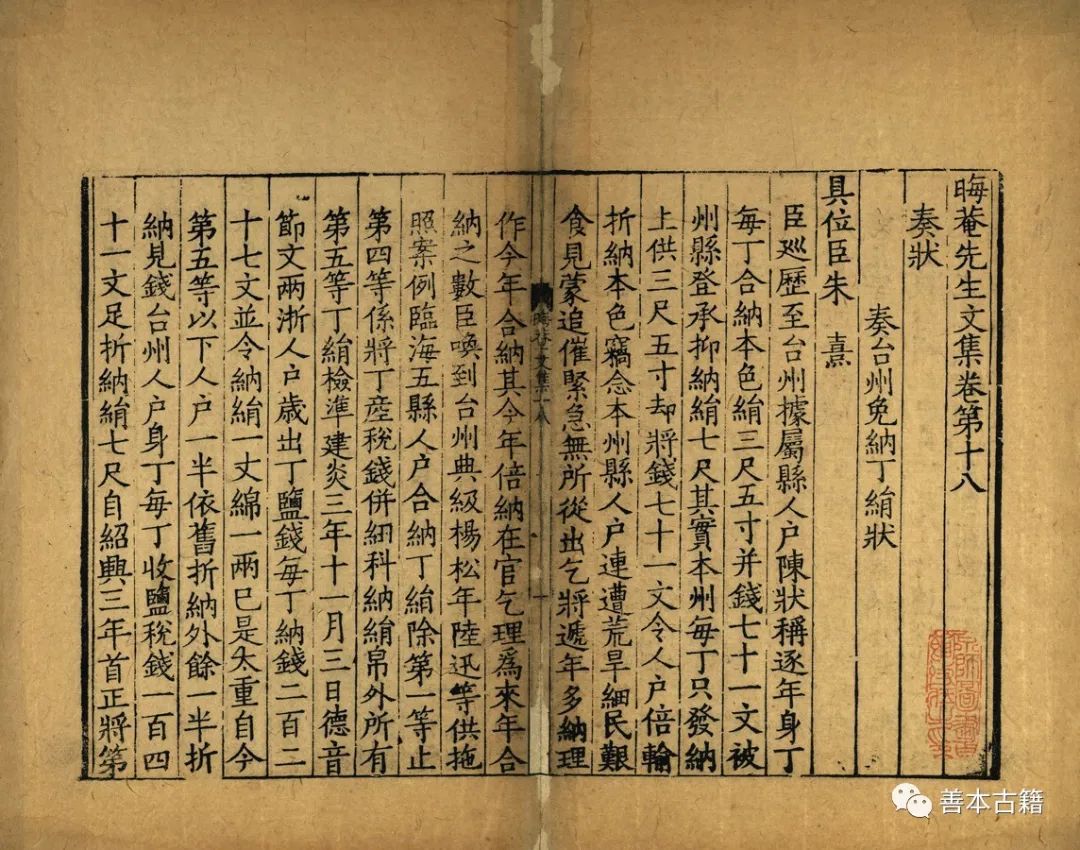 晦菴先生文集卷第十八
奏狀
奏台州免納丁絹狀
具位臣朱熹
臣巡歷至台州據屬縣人户陳狀稱逐年身丁
每丁合納本色絹三尺五寸并錢七十一文被
州縣登承抑納絹七尺其實本州每丁只發納
上供三尺五寸却將錢七十一文令人户倍輸
折納本色竊念本州縣人户連遭荒旱細民艱
食見蒙追催緊急無所從出乞將遞年多納理
作今年合納其今年倍納在官乞理爲來年合
納之數臣喚到台州典級楊松年陸迅等供拖
照案例臨海五縣人户合納丁絹除第一等止
第四等係將丁産稅錢併紐科納絹帛外所有
第五等丁絹檢準建炎三年十一月三日德音
節文兩浙人户歲出丁鹽錢每丁納錢二百二
十七文並令納絹一丈綿一兩已是太重自今
第五等以下人户一半依舊折納外餘一半折
納見錢台州人户身丁每丁收鹽稅錢一百四
十一文足折納絹七尺自紹興三年首正將第
善本古籍